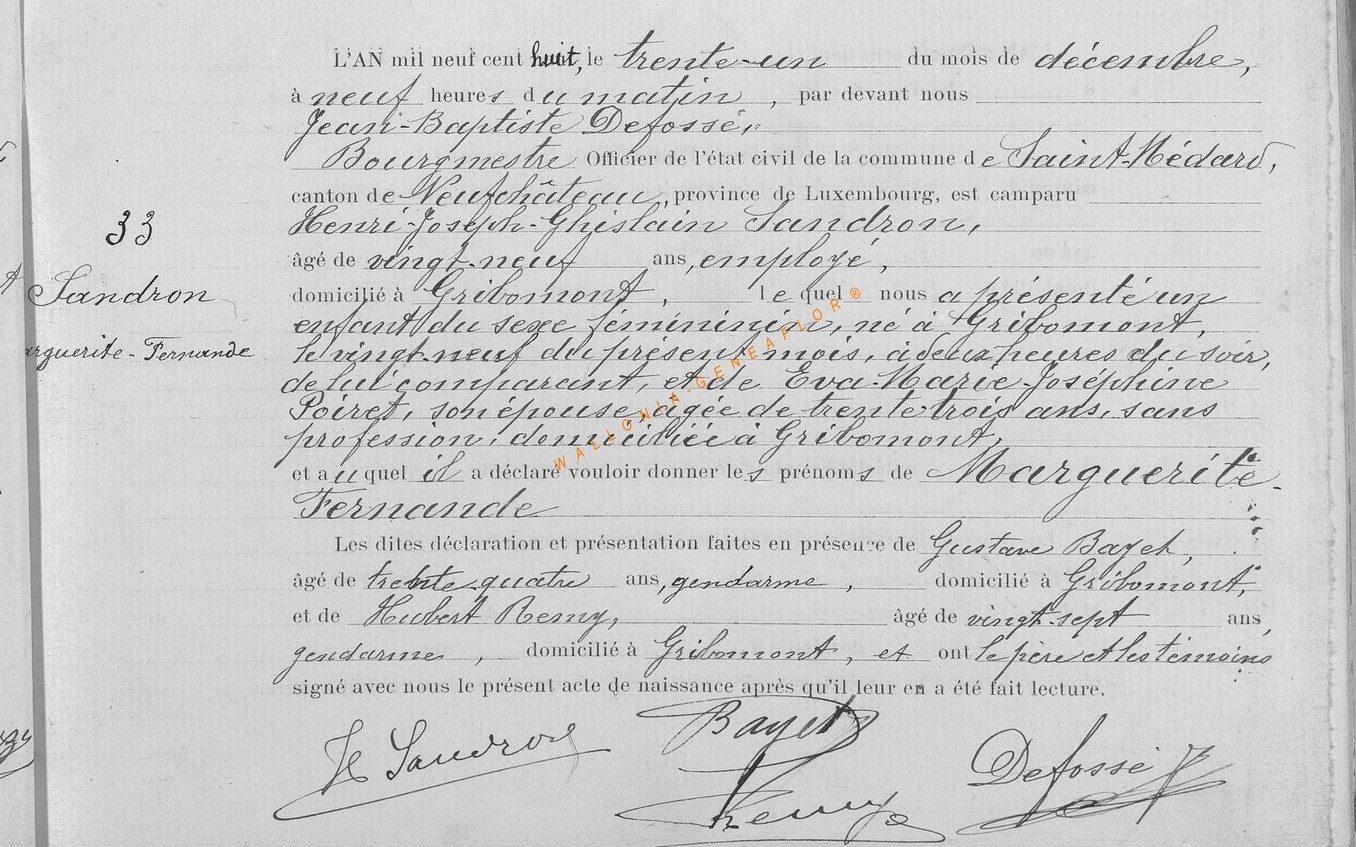 L'AN mil neuf cent huit, le trente-un du mois de décembre,
à neuf heures du matin, par devant nous
Jean-Baptiste Defossé,
Bourgmestre Officier de l'état civil de la commune de Saint-Médard,
canton de Neufchâteau, province de Luxembourg, est camparu
Henri-Joseph-Ghislain Sandron,
33
âgé de vingt-neuf ans, employé,
Sandron
domicilié à Gribomont, lequel nous a présenté un
enfant du sexe fémininin, né à Gribomont,
arguerite-Fernande
le vingt-neuf du présent mois, à deux heures du soir,
de lui comparant, et de Eva-Marie-Joséphine
Poiret, son épouse, agée de trente trois ans, sans
profession, domiciliée à Gribomont,
et auquel il a déclaré vouloir donner les prénoms de Marguerite-
Fernande
Les dites déclaration et présentation faites en présence de Gustave Bayet,
âgé de trente quatre ans, gendarme, domicilié à Gribomont,
et de Hubert Remy, âgé de vingt-sept ans,
gendarme, domicilié à Gribomont, et ont le père et les témoins
signé avec nous le présent acte de naissance après qu'il leur en a été fait lecture.
H Sandron Bayet Defossé
Remy
WALLONIA-GENEAFLOR®